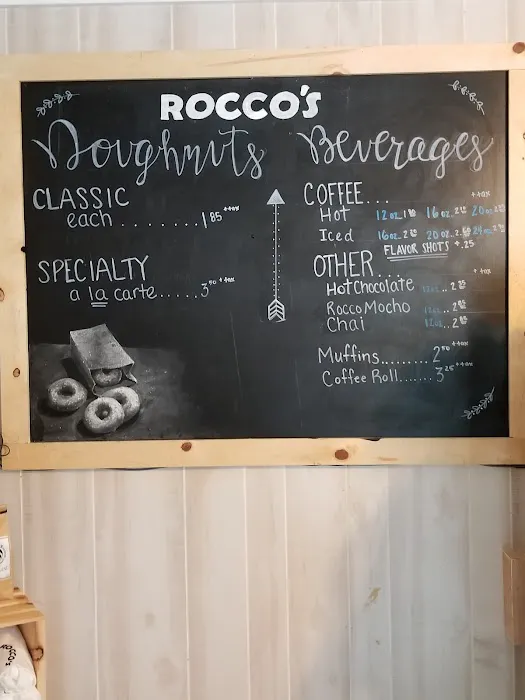 ROCCO'S
Doughnuts
CLASSIC
each ........ 1.85 +tax
SPECIALTY
a la carte..... 3.50 +tax
Beverages
COFFEE... +tax
Hot 12oz. 16oz. 20oz.
Iced 16oz. 20oz. 24oz.
FLAVOR SHOTS +.25
OTHER... +tax
Hot Chocolate 12oz..
Rocco Mocho 12oz..
Chai 12oz..
Muffins........ 2.50 +tax
Coffee Roll....... 3.25 +tax
ROCCO'S